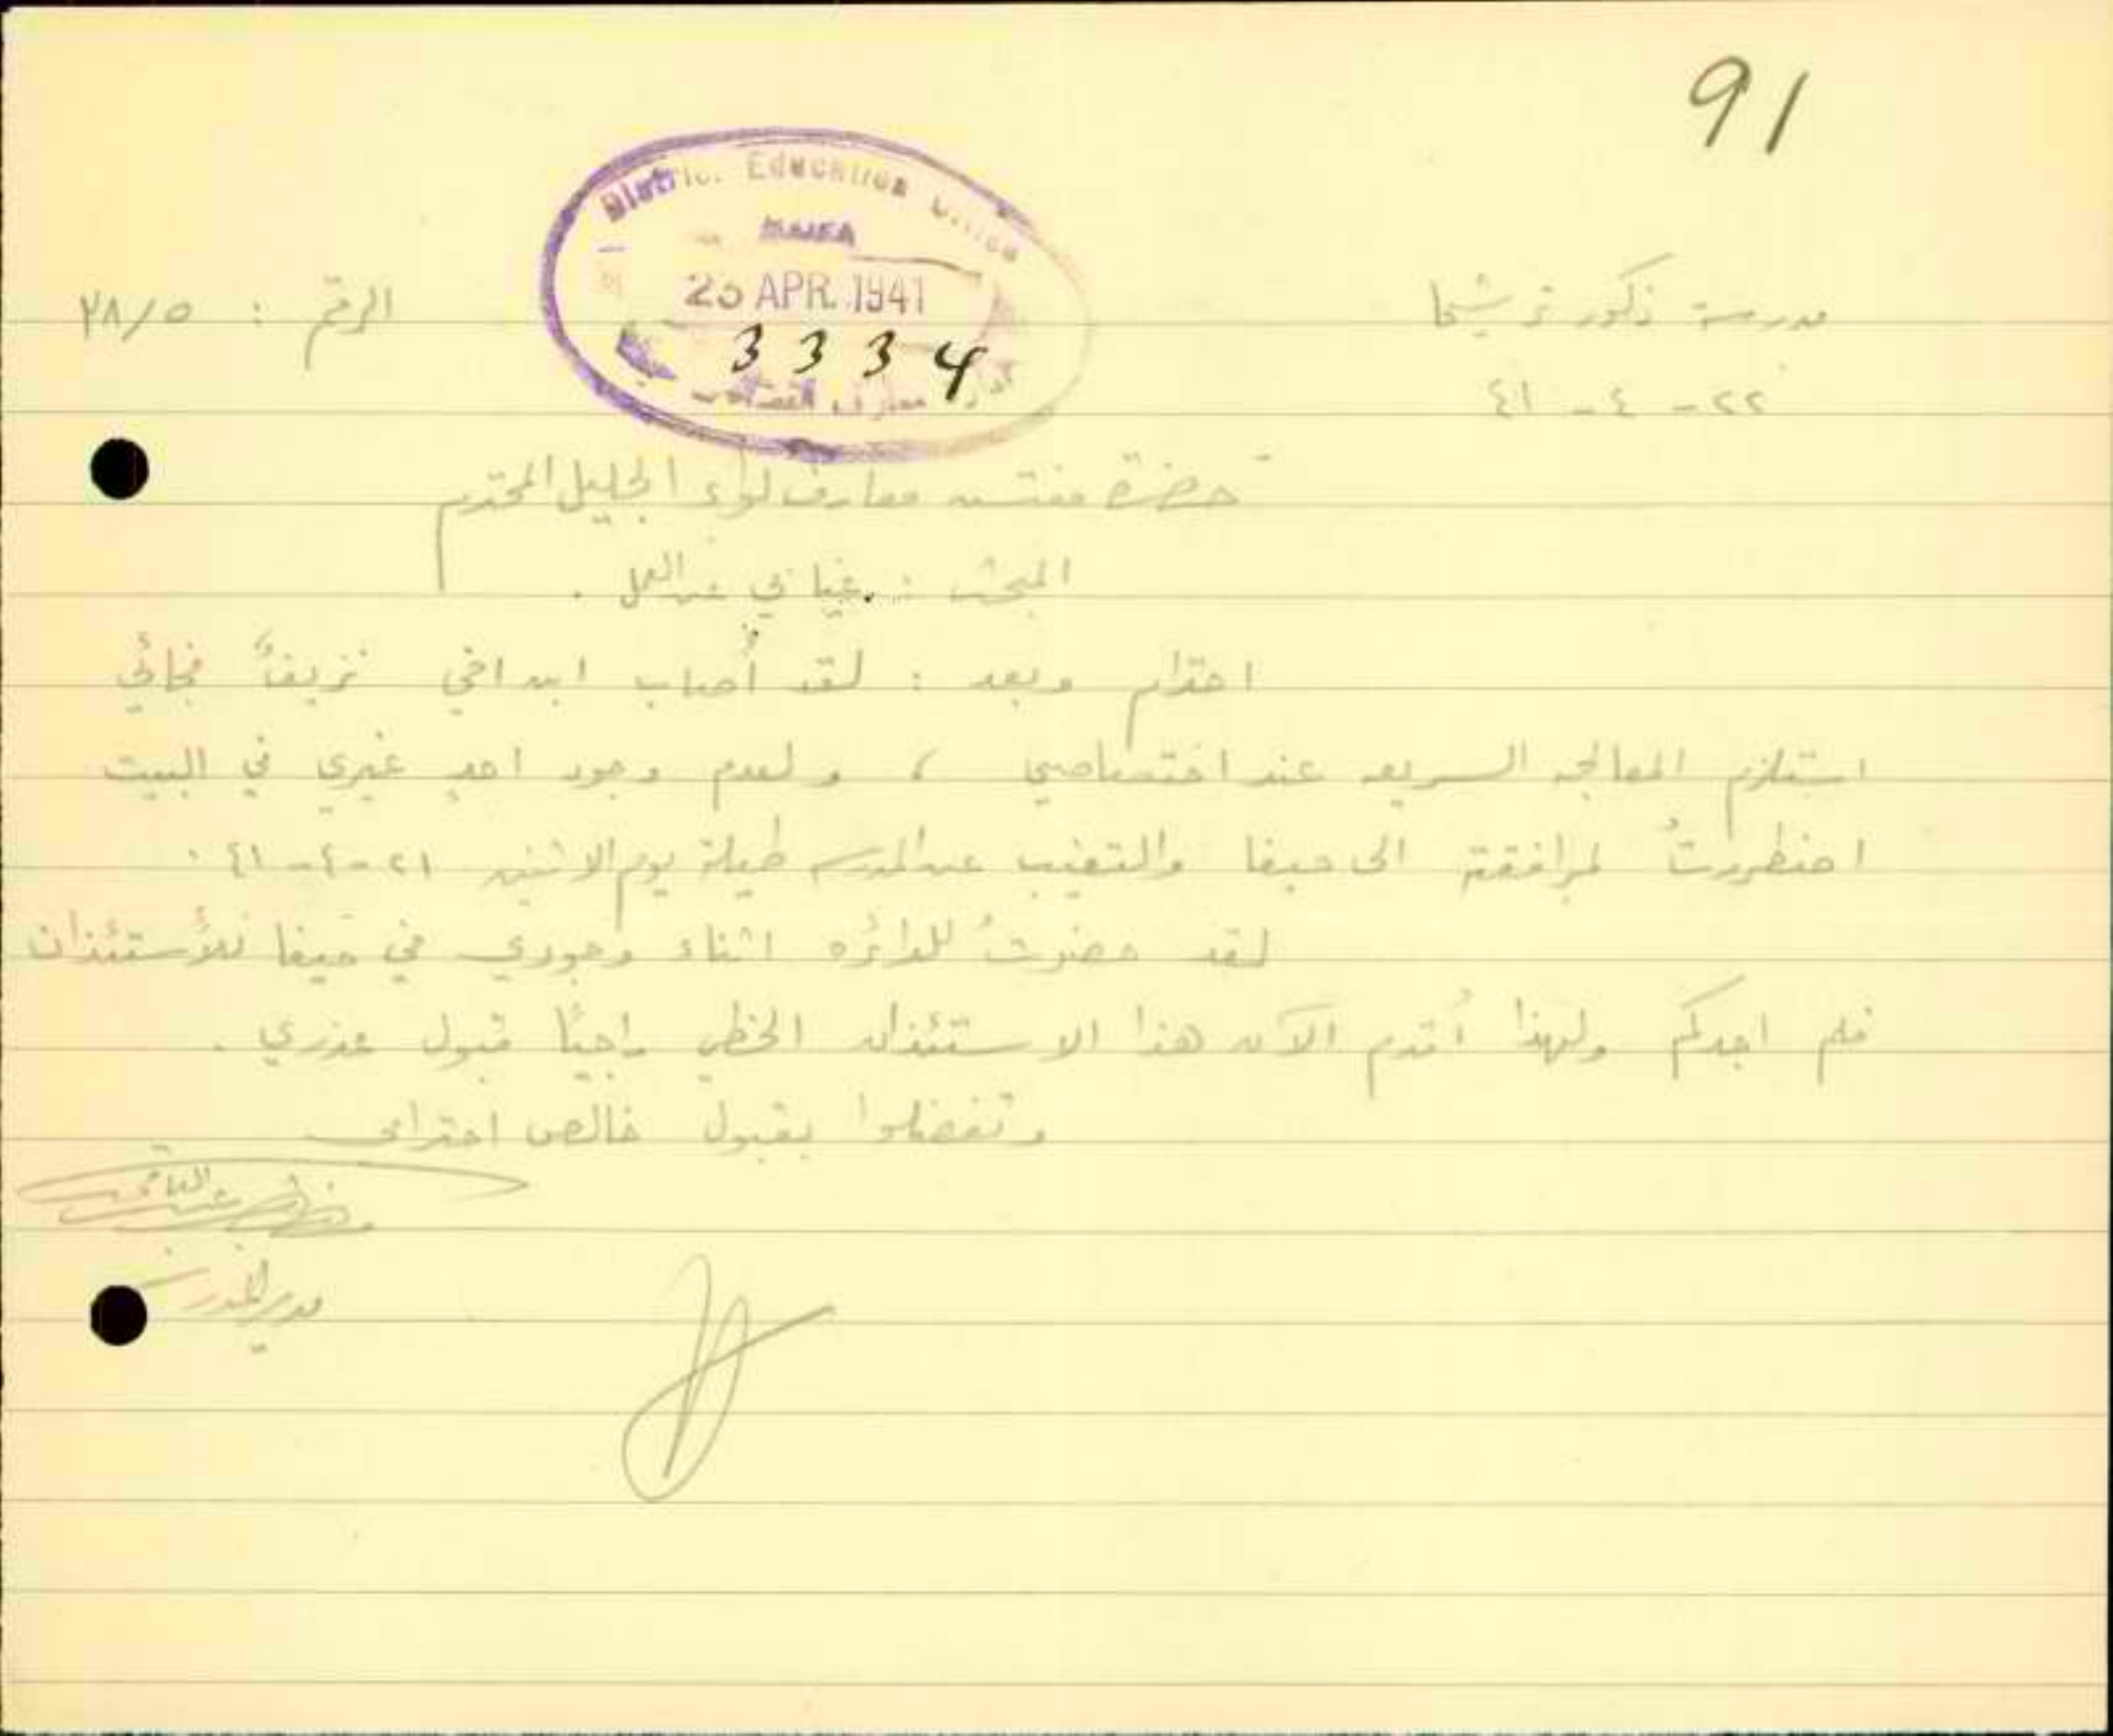 91
District Education Office
HAIFA
25 APR. 1941
3334
مدرسة ذكور ترشيحا
الرقم : ٢٨/٥
٢٢ - ٤ - ٤١
حضرة مفتش معارف لواء الجليل المحترم
المبحث : غيابي عن العمل .
احترام وبعد : لقد أصاب ابن اخي نزيفٌ فجائي
استلزم المعالجه السريعه عند اختصاصي ، ولعدم وجود احدٍ غيري في البيت
اضطررتُ لمرافقته الى حيفا والتغيب عن المدرسه طيلة يوم الاثنين ٢١-٤-٤١ .
لقد حضرتُ للدائره اثناء وجودي في حيفا للأستئذان
فلم اجدكم ولهذا أقدم الآن هذا الاستئذان الخطي راجيًا قبول عذري .
وتفضلوا بقبول خالص احترامي
مدير المدرسة